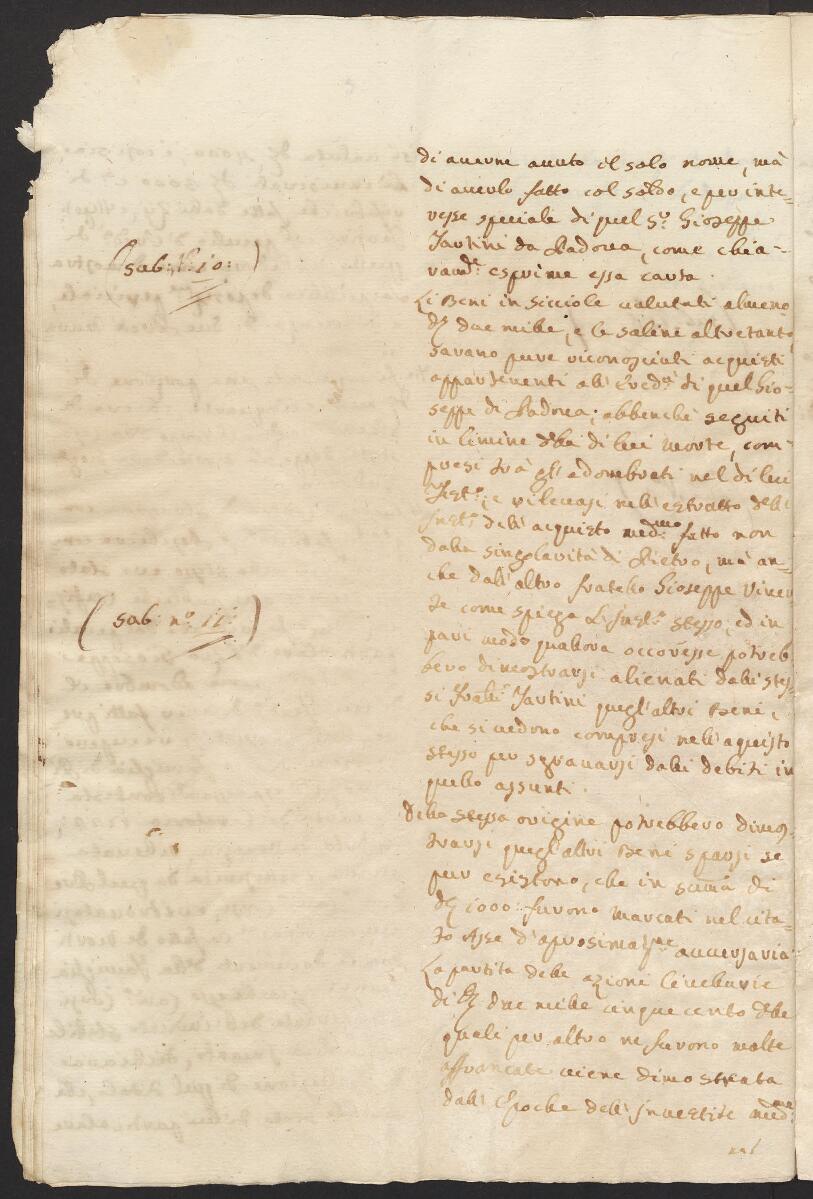 di averne avuto il solo nome, mà
di averlo fatto col soldo, e per inte-
resse speciale di quel Sr. Gioseppe
Tartini da Padova, come chia-
ramte. esprime essa carta.
(sab: n: 10:)
Li Beni in Sicciole valutati almeno
due mille, e le saline altretanto
sarano pure riconosciuti acquisti
appartenenti all' Eredtà di quel Gio-
seppe di Padova; abbenchè seguiti
in limine della di lui morte, com-
presi trà gl' adombrati nel di lui
Testo., e rilevasi nell' estratto dell'
Insto. dell' acquisto medmo. fatto non
dalla singolarità di Pietro, mà an-
che dall' altro fratello Gioseppe viven-
te come spiega l' Insto. stesso, ed in
(sab: no. 11:)
pari modo qualora occoresse potreb-
bero dimostrarsi alienati dalli stes-
si Frali. Tartini quegl' altri Beni,
che si vedono compresi nell' aquisto
stesso per sgravarsi dalli debiti in
quello assunti.
Della stessa origine potrebbero dimos-
trarsi quegl' altri Beni sparsi se
pur esistono, che in summa di
1000: furono marcati nel cita-
to Asse d' aprosimatne. avversaria.
La partita delle azioni livellarie
di due mille cinque cento delle
quali per altro ne furono molte
affrancate viene dimostrata
dall' Epoche dell' Investite medme: